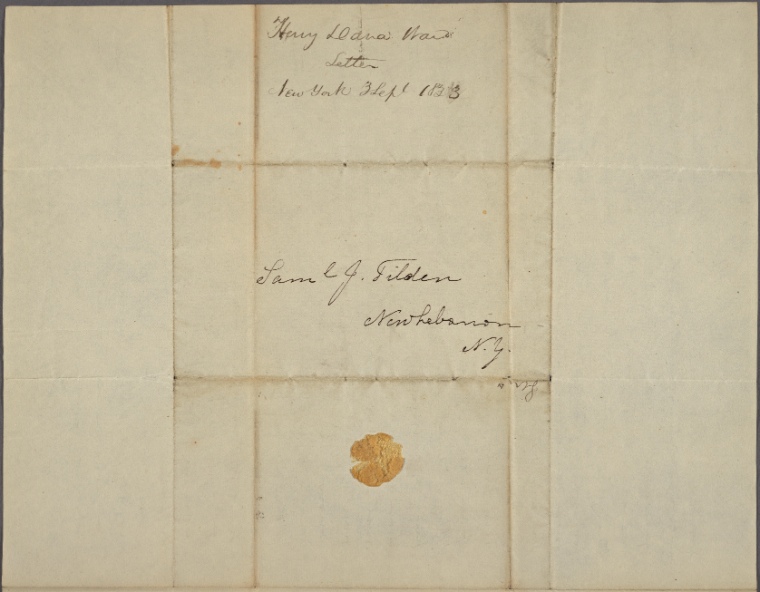 Henry Dana Ward
Letter
New York 3 Sept 1833
Saml J. Tilden
New Lebanon
N.Y.